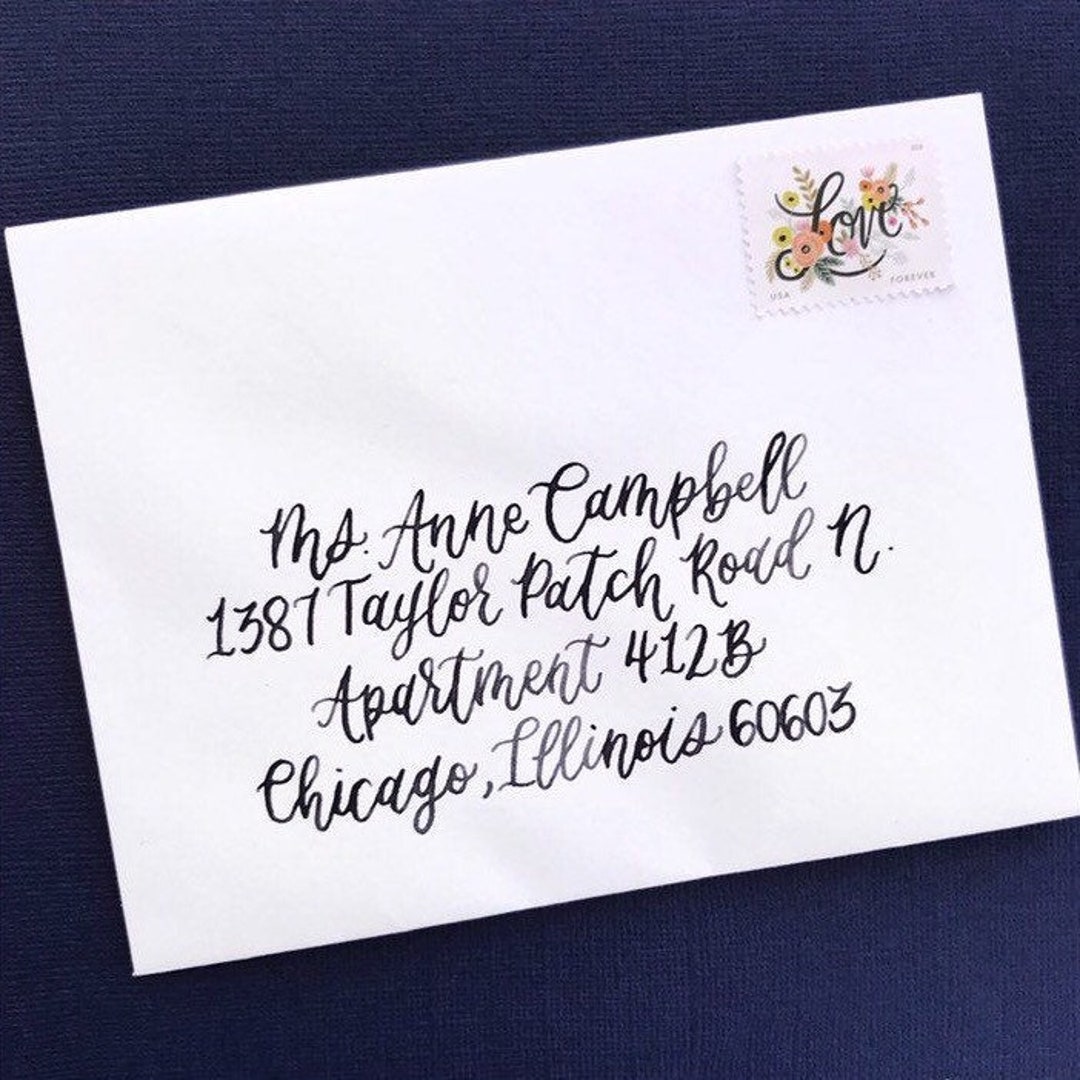 Love
USA FOREVER
Ms. Anne Campbell
1387 Taylor Patch Road N.
Apartment 412B
Chicago, Illinois 60603